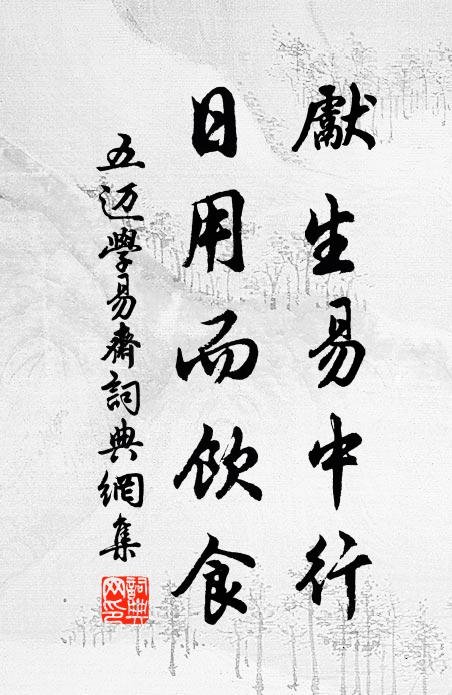 獻生易中行
日用而飲食
五迈學易齋詞典網集
詞典